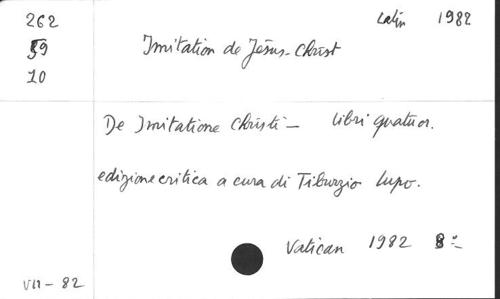 262
59
10
Latin 1982
Imitation de Jésus-Christ
De Imitatione Christi - libri quatuor.
edizione critica a cura di Tiburzio Lupo.
Vatican 1982 8º-
VII - 82